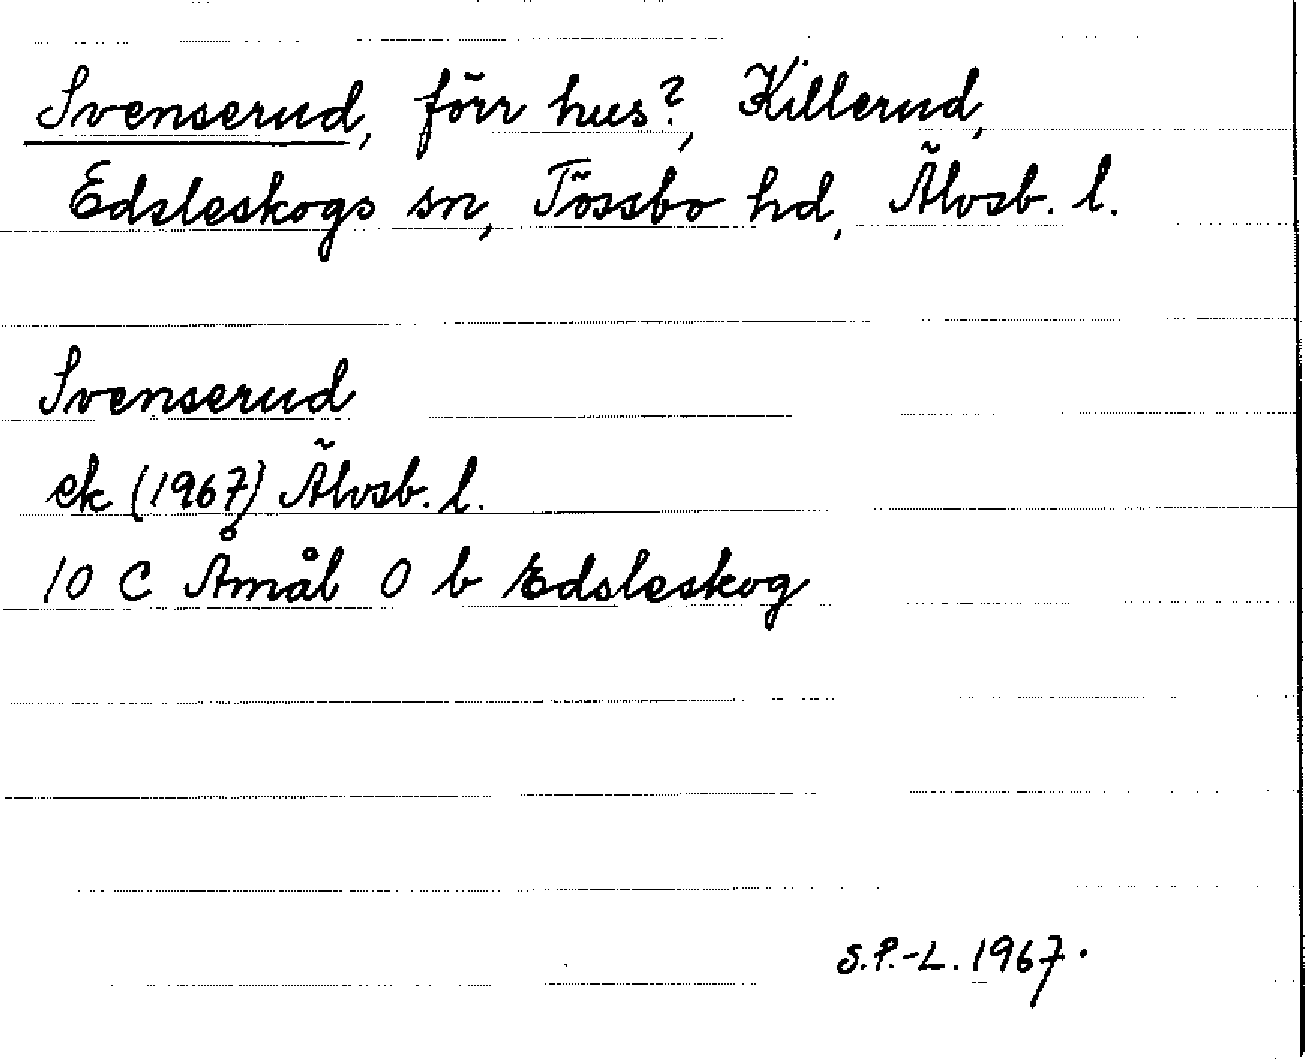 Svenserud, förr hus?, Killerud,
Edsleskogs sn, Tössbo hd, Älvsb. l.
Svenserud
ek (1967) Älvsb. l.
10 C Åmål O b Edsleskog
S.P.-L. 1967.